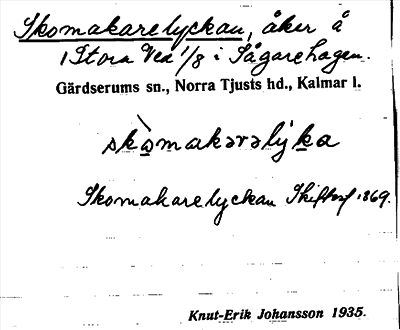 Skomakarelyckan, åker å
1 Stora Ved 1/8 i Sågarehagen.
Gärdserums sn., Norra Tjusts hd., Kalmar l.
skòmakərəlyka
Skomakarelyckan Skiftesf 1869.
Knut-Erik Johansson 1935.